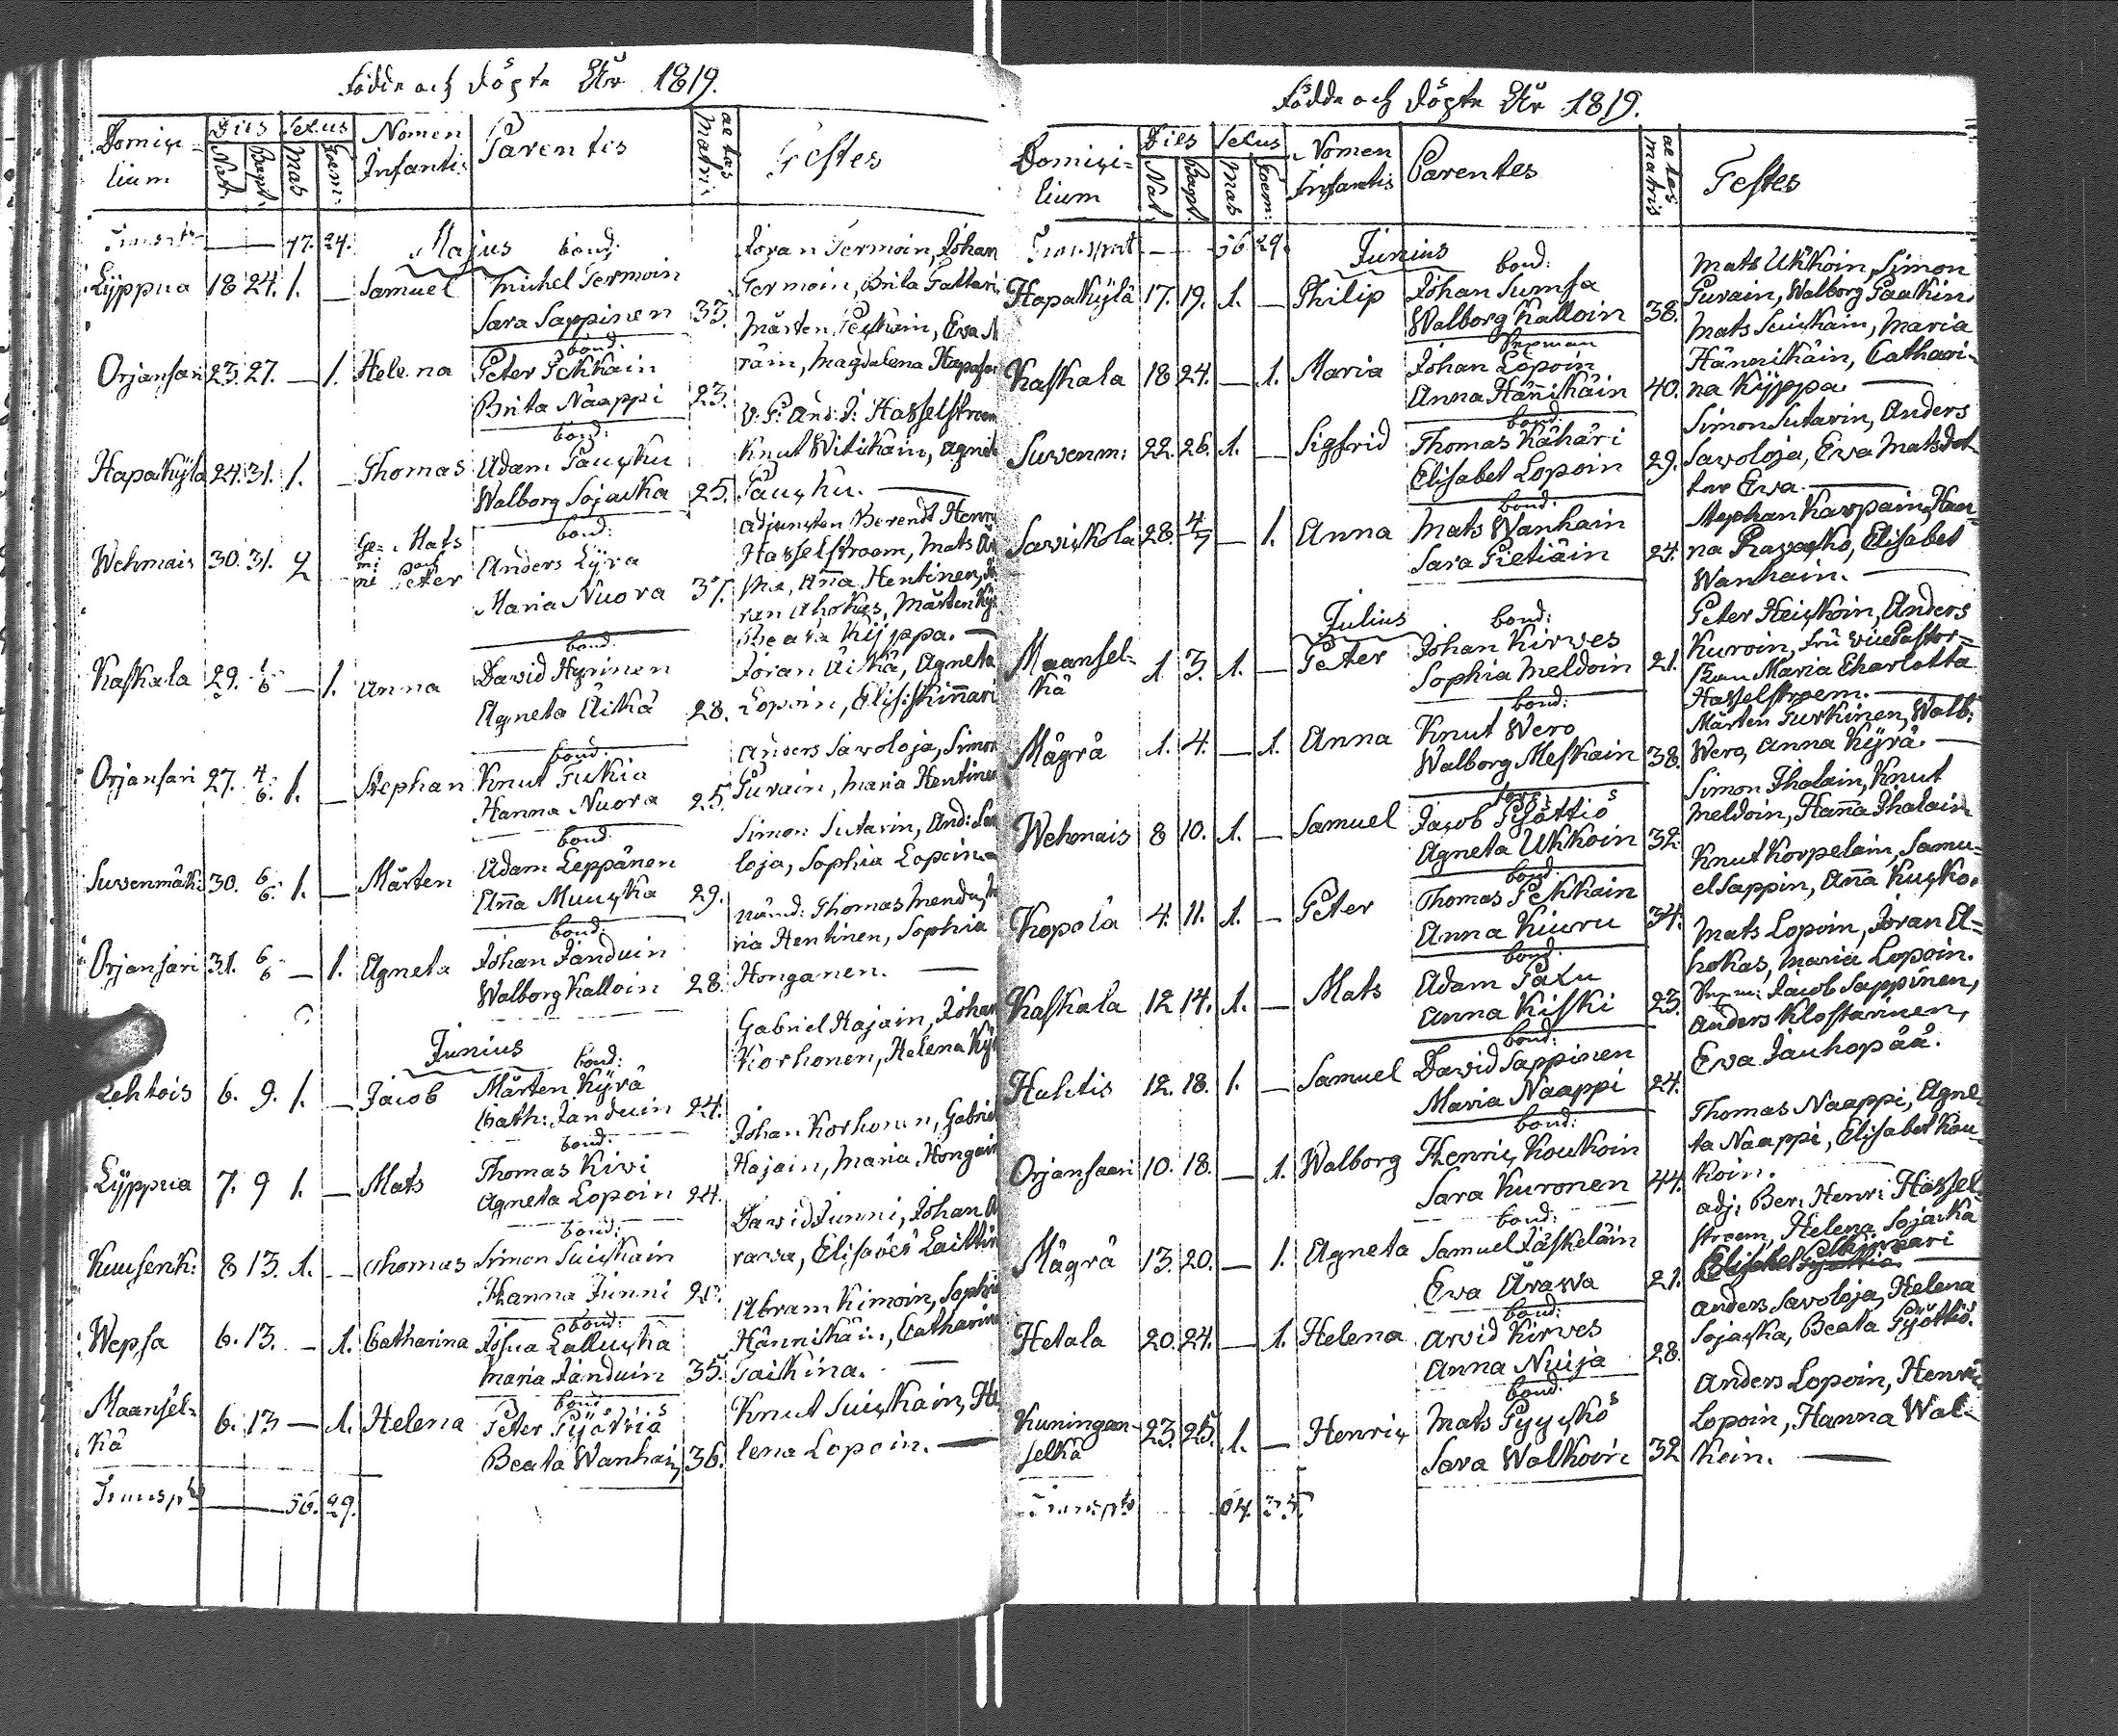 Födde och Döpte År 1819.
Domici-
lium
Dies
Nat.
Bapt.
Sexus
Mas
Foem:
Nomen
Infantis
Parentes
aetas
Matris
Testes
Transpt — — 47. 24.
Majus bond:
Lyppua 18 24. 1. — Samuel Michel Termoin
Sara Sappinen 33.
Jöran Termoin, Johan
Termoin, Brita Tattari
bond:
Orjansari 23. 27. — 1. Helena Peter Pekkain
Brita Näappi 23.
Mårten Pekkain, Eva
räin, Magdalena Hapasa
bond:
Hapakylä 24. 31. 1. — Thomas Adam Paucku
Walborg Sojacka 25.
V. P. And: J: Hasselstroem
Knut Witikäin, Agnet
Paucku. —
bond:
Wehmais 30. 31. 2 Ge-mi-ni Mats och Peter
Anders Lyra
Maria Nuora 37.
adjuncten Berendt Henri
Hasselstroem, Mats
Anna Hentinen,
ran Ahokas, Mårten Ky
Beata Kyppa. —
bond:
Kaskala 29. 1/6 — 1. Anna David Hyrinen
Agneta Äikä 28.
Jöran Äikä, Agneta
Lopoin, Elis: Kinnari
bond:
Orjansari 27. 4/6. 1. — Stephan Knut Tukia
Hanna Nuora 25.
Anders Savoloja, Simon
Purain, Maria Hentinen
bond:
Suvenmäki 30. 6/6. 1. — Mårten Adam Leppänen
Anna Muucka 29.
Simon Sutarin, And: Sa
loja, Sophia Lopoin
bond:
Orjansari 31. 6/6 — 1. Agneta Johan Janduin
Walborg Kalloin 28.
nämd: Thomas Mendu,
ria Hentinen, Sophia
Honganen. —
Junius
bond:
Lehtois 6. 9. 1. — Jacob Mårten Kyrä
Cath: Janduin 24.
Gabriel Hajain, Johan
Korhonen, Helena Ky
bond:
Lyppua 7. 9 1. — Mats Thomas Kivi
Agneta Lopoin 24.
Johan Korhonen, Gabriel
Hajain, Maria Hongain
bond:
Kuusenk: 8 13. 1. — Thomas Simon Suickain
Hanna Junni
David Junni, Johan
rawa, Elisabet Laittin
bond:
Wepsa 6. 13. — 1. Catharina Josua Lallucka
Maria Janduin 35.
Abram Kimoin, Sophia
Hännikäin, Catharina
Taikina. —
bond:
Maansel-
kä 6. 13 — 1. Helena Peter Pyöttiö
Beata Wanhain 36.
Knut Suickain, He
lena Lopoin. —
Transpt — — 56. 29.
Födde och Döpte År 1819.
Domici-
lium
Dies
Nat.
Bapt.
Sexus
Mas
Foem:
Nomen
Infantis
Parentes
aetas
matris
Testes
Transport — 56 29.
Junius
bond:
Hapakylä 17. 19. 1. — Philip Johan Sumsa
Walborg Kalloin 38.
Mats Ukkoin, Simon
Purain, Walborg Paakin.
Kaskala 18 24. — 1. Maria Johan Lopoin
Anna Hännikäin 40.
Mats Suickain, Maria
Hännikäin, Cathari-
na Kyppa. —
bond:
Suvenm: 22. 26. 1. — Sigfrid Thomas Kähäri
Elisabet Lopoin 29.
Simon Sutarin, Anders
Savoloja, Eva Matsdot-
ter Eva. —
bond:
Savickola 28. 4/7 — 1. Anna Mats Wanhain
Sara Pietiäin 24.
Stephan Karpain, Han-
na Ravacko, Elisabet
Wanhain. —
Julius
bond:
Maansel-
kä 1. 3. 1. — Peter Johan Kirves
Sophia Meldoin 21.
Peter Heickoin, Anders
Kuroin, fru vice Pastor-
skan Maria Charlotta
Hasselstroem. —
bond:
Mägrä 1. 4. — 1. Anna Knut Wero
Walborg Meskain 38.
Mårten Turkinen, Walb:
Wero, Anna Kyrä. —
Wehmais 8 10. 1. — Samuel Jacob Pyöttiö
Agneta Ukkoin 32.
Simon Ihalain, Knut
Meldoin, Hanna Ihalain
bond:
Kopola 4. 11. 1. — Peter Thomas Pekkain
Anna Kiuru 34.
Knut Korpelain, Samu-
el Sappin, Anna Kucko.
bond:
Kaskala 12 14. 1. — Mats Adam Paxu
Anna Kiski 23.
Mats Lopoin, Jöran A-
hokas, Maria Lopoin.
bond:
Huhtis 12. 18. 1. — Samuel David Sappinen
Maria Naappi 24.
Jacob Sappinen,
Anders Klostarinen,
Eva Jauhopää.
bond:
Orjansaari 10. 18. — 1. Walborg Henric Koukoin
Sara Kuronen 44.
Thomas Naappi, Agne-
ta Naappi, Elisabet Kou-
koin.
bond:
Mägrä 13. 20. — 1. Agneta Samuel Jäskeläin
Eva Ärawa 21.
adj: Ber: Henri Hassel-
stroem, Helena Sojacka
bond:
Hetala 20. 24. — 1. Helena Arvid Kirves
Anna Nuija 28.
Anders Savoloja, Helena
Sojacka, Beata Pyöttiö.
bond:
Kuningan-
selkä 23. 25. 1. — Henric Mats Pyyckö
Sara Walkoin 32
Anders Lopoin, Henric
Lopoin, Hanna Wal-
koin. —
Transpt 64. 35.